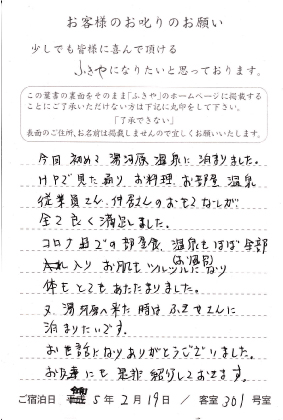 お客様のお叱りのお願い
少しでも皆様に喜んで頂ける
ふきやになりたいと思っております。
この葉書の裏面をそのまま「ふきや」のホームページに掲載する
ことにご了承いただけない方は下記に丸印をして下さい。
「了承できない」
表面のご住所、お名前は掲載しませんので宜しくお願いいたします。
今回初めて湯河原温泉に泊まりました。
HPで見た通り お料理 お部屋 温泉
従業員さん 仲居さんのおもてなしが
全て良く満足しました。
コロナ 部屋食 温泉もほぼ全部
(お風呂)
入り お肌もツルツルになり
体もとてもあたたまりました。
又 湯河原へ来た時はふきやさんに
泊まりたいです。
お世話になりありがとうございました。
お友達にも是非紹介しておきます。
ご宿泊日 令和 5年 2月 19日 / 客室 301号室